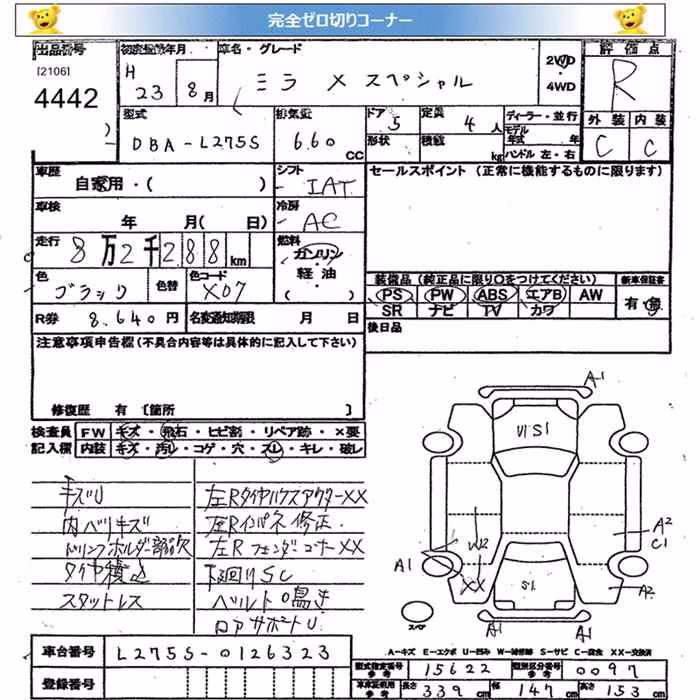 完全ゼロ切りコーナー
出品番号
[2106]
4442
初度登録年月
H 23年 8月
車名・グレード
ミラ X スペシャル
2WD
4WD
評価点
R
型式
DBA-L275S
排気量
6.60 CC
ドア 5
形状
定員 4 人
積載 kg
ディーラー・並行
モデル年式 年
ハンドル 左・右
外装 内装
C C
車歴
自家用・( )
シフト
IAT
セールスポイント (正常に機能するものに限ります)
車検
年 月( 日)
冷房
AC
走行
8万2千288km
燃料
ガソリン
軽油
( )
色
ブラック
色替
色コード
X07
装備品 (純正品に限り○をつけてください)
新車保証書
PS PW ABS エアB AW
SR ナビ TV カワ
有・無
R券 8,640円
名変通知期限 月 日
後日品
注意事項申告欄(不具合内容等は具体的に記入して下さい)
修復歴 有〔箇所 〕
検査員記入欄
FW キズ・飛石・ヒビ割・リペア跡・×要
内装 キズ・汚レ・コゲ・穴・スレ・キレ・破レ
キズU
内ハリキズ
ドリンクホルダー部欠
タイヤ積込
スタットレス
左RタイヤハウスアウターXX
左Rインパネ修正
左RフェンダーコーナーXX
下回りSC
ベルト鳴き
ロアサポートU
A1
VISI
W2
XX
A1
A2
C1
A2
S1
A1
A1
スペア
A=キズ E=エクボ U=凹ミ W=補修跡 S=サビ C=腐食 XX=交換済
車台番号
L275S-0126323
登録番号
型式指定番号参考
15622
類別区分番号
0097
車庫証明用参考
長さ 339 cm
幅 147 cm
高さ 153 cm